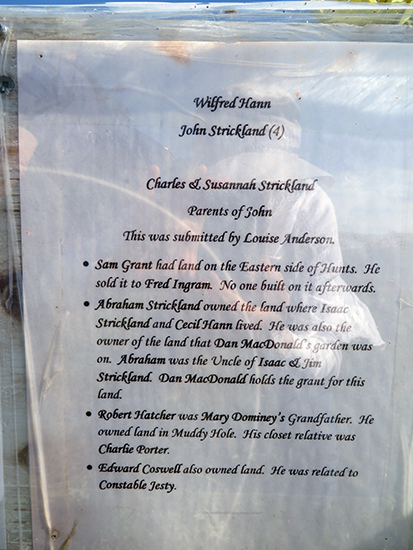 Wilfred Hann
John Strickland (4)
Charles & Susannah Strickland
Parents of John
This was submitted by Louise Anderson.
• Sam Grant had land on the Eastern side of Hunts. He
sold it to Fred Ingram. No one built on it afterwards.
• Abraham Strickland owned the land where Isaac
Strickland and Cecil Hann lived. He was also the
owner of the land that Dan MacDonald's garden was
on. Abraham was the Uncle of Isaac & Jim
Strickland. Dan MacDonald holds the grant for this
land.
• Robert Hatcher was Mary Dominey's Grandfather. He
owned land in Muddy Hole. His closet relative was
Charlie Porter.
• Edward Coswell also owned land. He was related to
Constable Jesty.